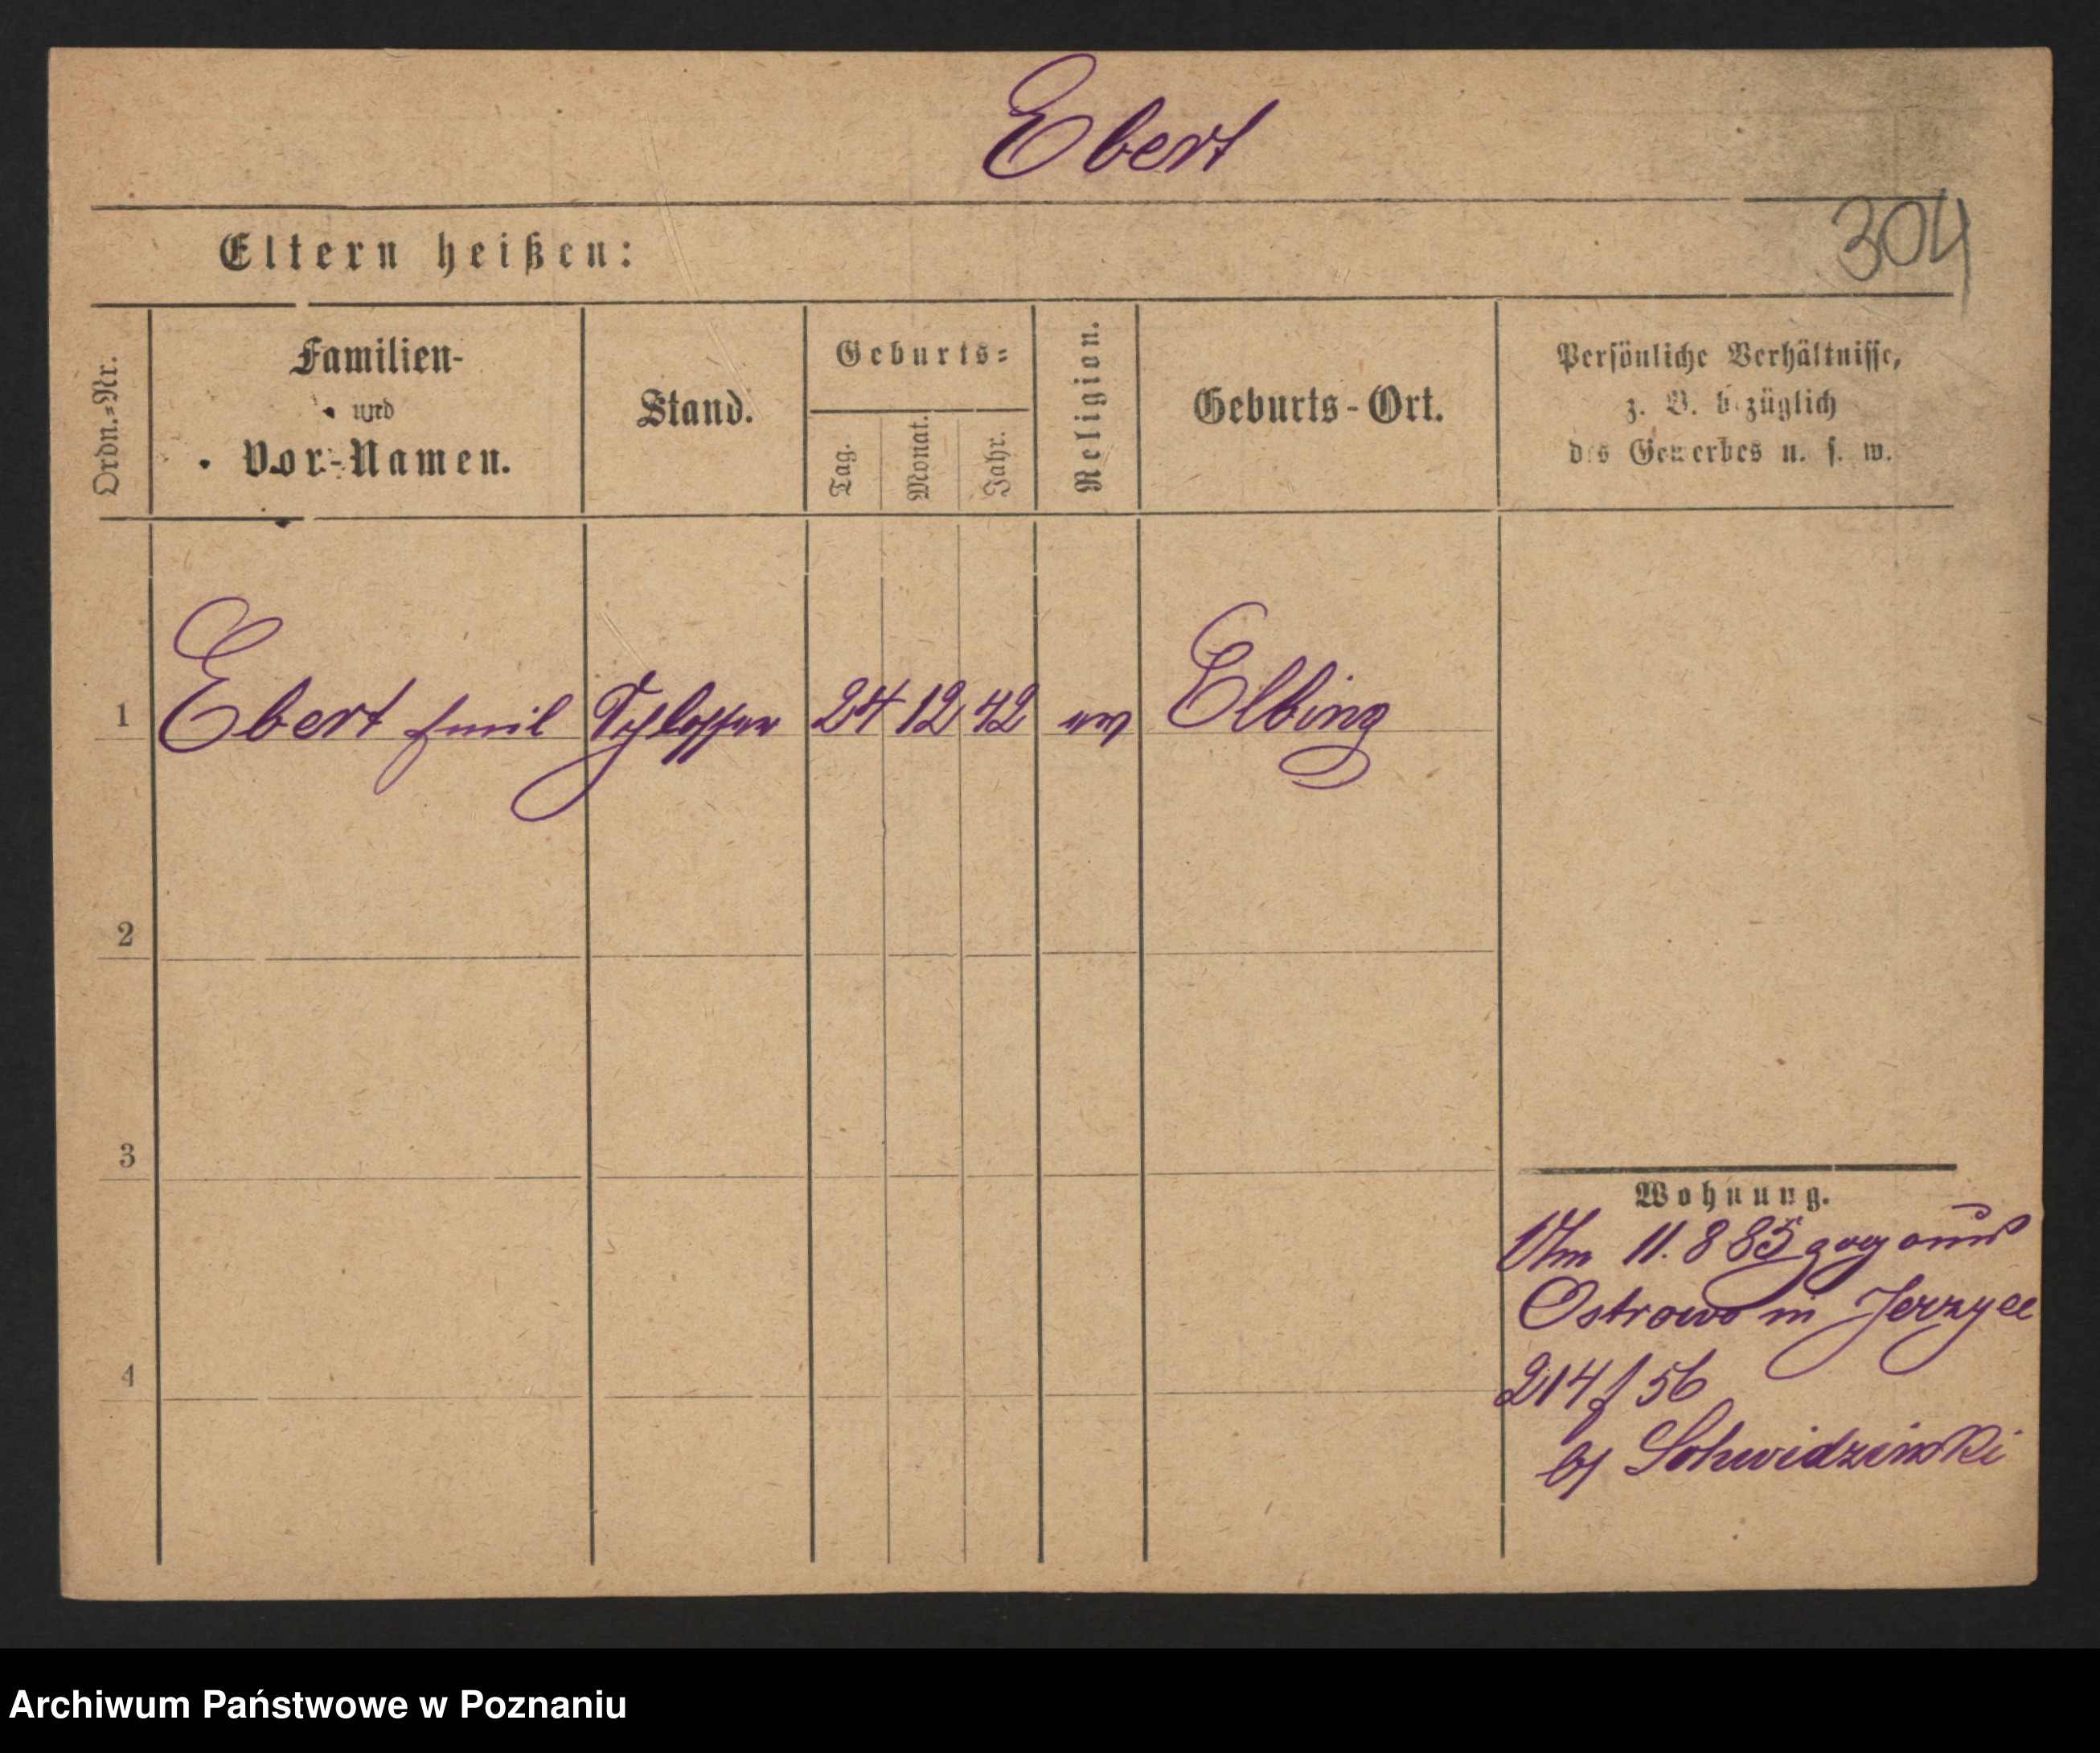 Ebert
304
Eltern heißen:
Ordn.=Nr.
Familien-
und
Vor-Namen.
Stand.
Geburts=
Tag.
Monat.
Jahr.
Religion.
Geburts-Ort.
Persönliche Verhältnisse,
z. B. bezüglich
des Gewerbes u. s. w.
1 Ebert Emil Schlosser 24 12 42 ev Elbing
2
3
4
Wohnung.
Am 11. 8 85 zog aus
Ostrowo in Jerzyce
214 f 56
b/ Schwidzinski
Archiwum Państwowe w Poznaniu